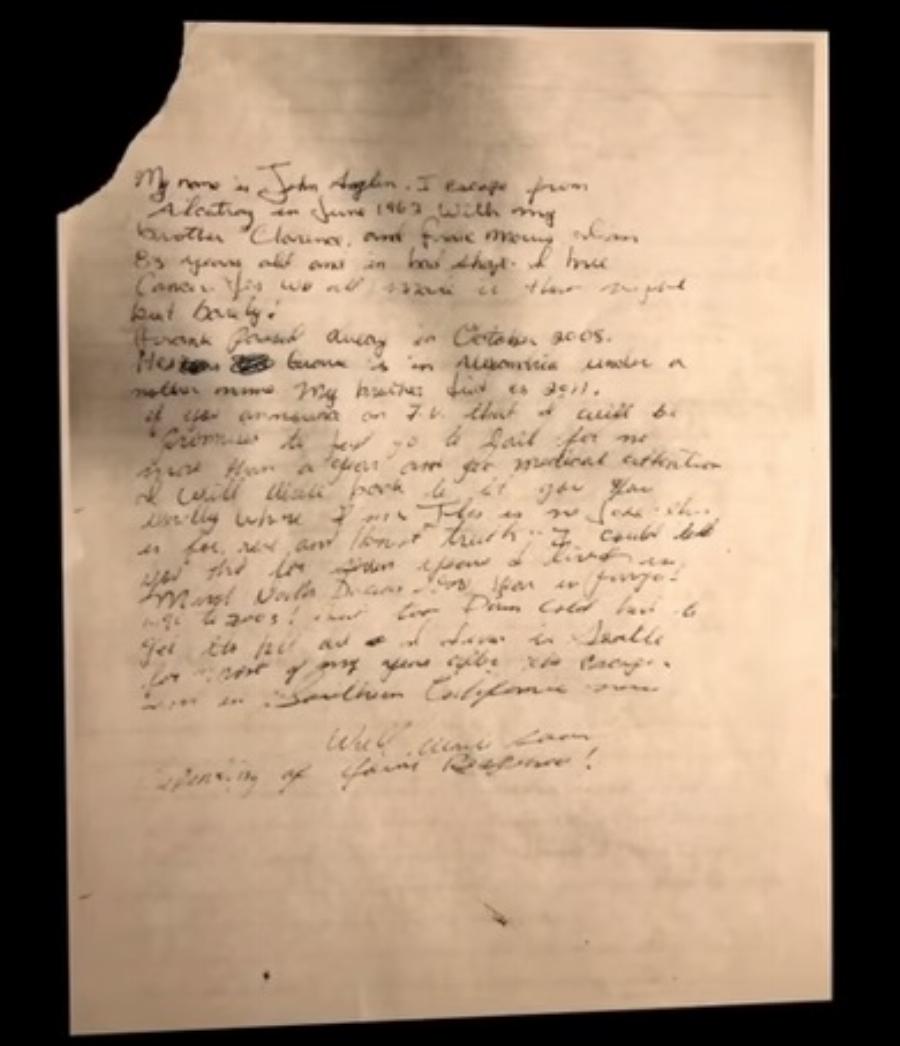 My name is John Anglin. I escape from
Alcatraz in June 1962 With my
brother Clarence, and Frank Morris
83 years old and in bad shape. I have
Cancer. Yes we all made it that night
but barely!
Frank passed away in October 2008.
His grave is in Alexandria under a
nother name My brother died in 2011.
if you announce on T.V. that I will be
Promised to first go to Jail for no
more than a year and get medical attention
I will write back to let you know
exactly where I am This is no Joke
is for real and honest truth. I could tell
you that for seven years I lived in
Minot North Dakota and year in Fargo
to 2003!
I in Seattle
for most of my years after the escape.
in Southern California now
Will
of your Response!